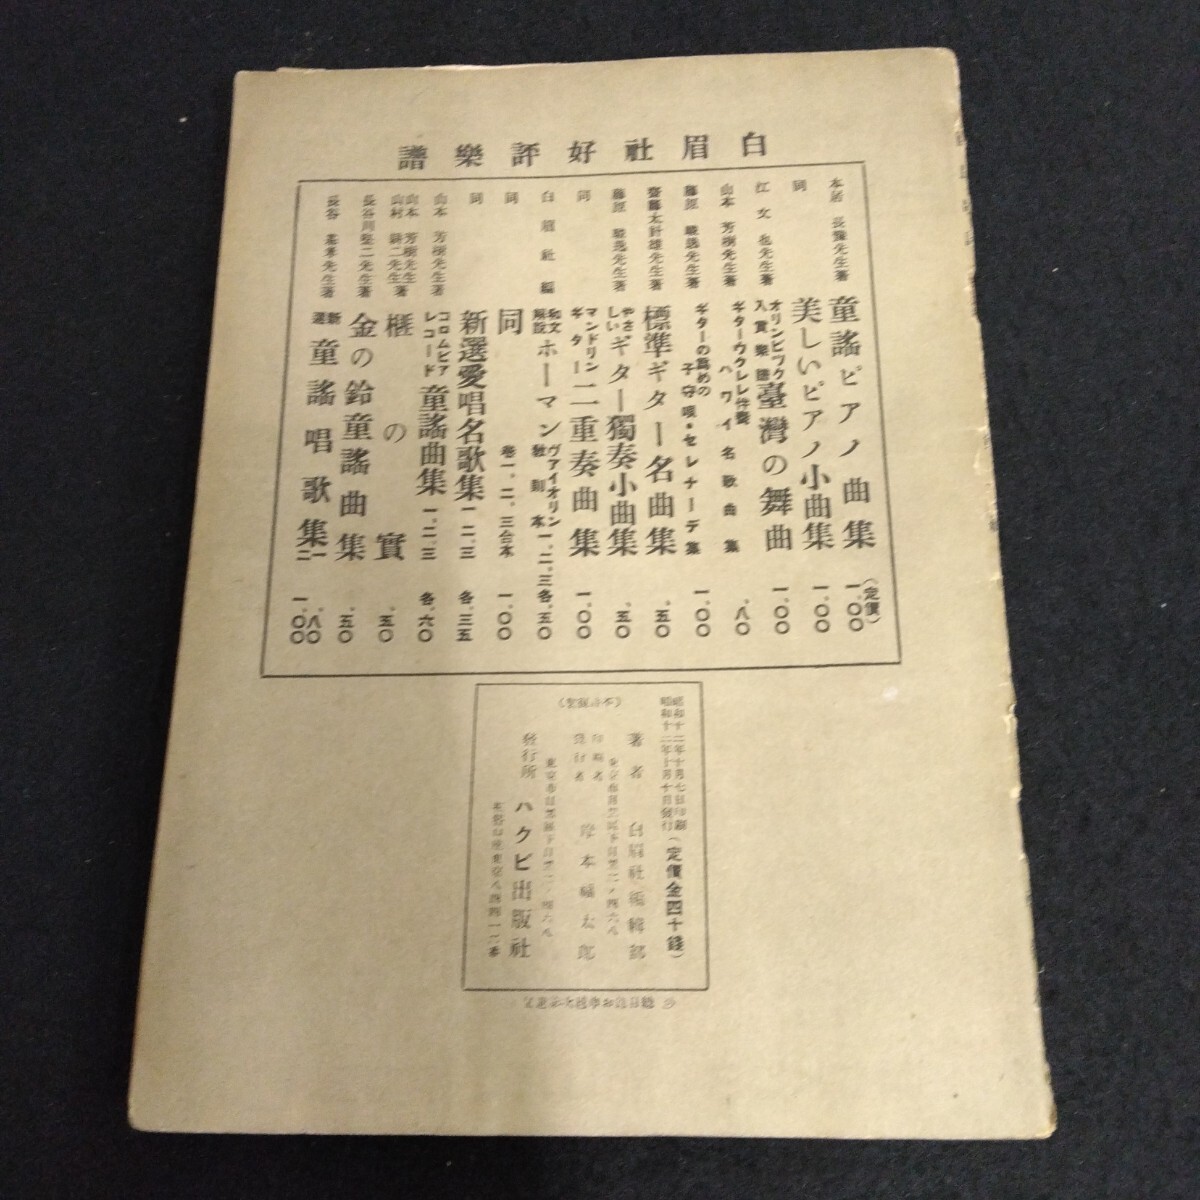 白眉社好評樂譜
本居長豫先生著 童謠ピアノ曲集 (定價) 一.〇〇
同 美しいピアノ小曲集 一.〇〇
江文也先生著 オリンピツク入賞樂譜 臺灣の舞曲 一.〇〇
山本芳樹先生著 ギターウクレレ伴奏 ハワイ名歌曲集 .八〇
藤原 先生著 ギターの爲めの 子守唄・セレナーデ集 一.〇〇
齋藤太計雄先生著 標準ギター名曲集 .五〇
藤原 先生著 やさしい ギター獨奏小曲集 .五〇
同 マンドリンギター 二重奏曲集 一.〇〇
白眉社編 和文解說 ホーマン ヴアイオリン敎則本 一、二、三 各.五〇
同 同 卷一、二、三合本 一.〇〇
同 新選愛唱名歌集 一、二、三 各.三五
山本芳樹先生著 コロムビアレコード 童謠曲集 一、二、三 各.六〇
山本芳樹先生 山村耕二先生著 榧の實 .五〇
長谷川堅二先生著 金の鈴童謠曲集 .五〇
長谷基孝先生著 新選 童謠唱歌集 一 二 .八〇 一.〇〇
昭和十二年十月七日印刷
昭和十二年十月十日發行
(定價金四十錢)
著者 白眉社編輯部
東京市目黑區下目黑二ノ四六八
印刷者 發行者 岸本 太郎
東京市目黑區下目黑二ノ四六八
發行所 ハクビ出版社
振替口座東京八四四一二番